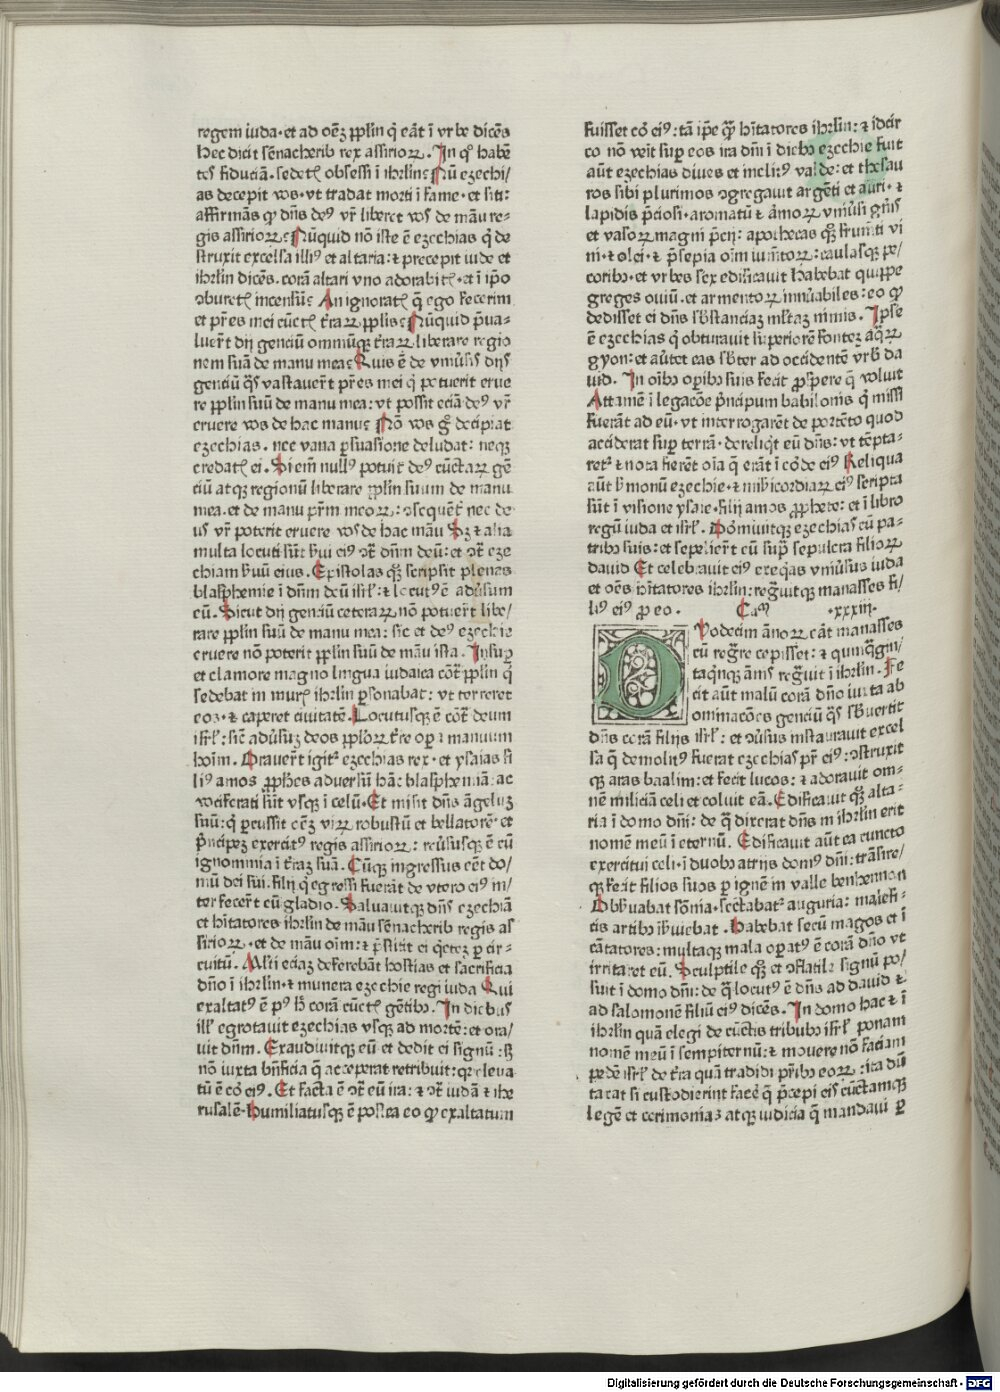 regem iuda·et ad oēȝ pplm̄ q̇ eāt ī vrbe dicēs
Hec dicit sēnacherib rex assirioꝝ. In qͦ habē
tes fiduciā.sedetꝭ obsessi ī ihrlm̄ Nū ezechi/
as decepit vos·vt tradat morti ī fame·et siti:
affirmās qꝙ dn̄s deꝰ vr̄ liberet vos de māu re-
gis assirioꝝ Nūquid nō iste ē ezechias q̇ de
struxit excelsa illiꝰ et altaria:⁊ precepit iude et
ihrlm̄ dicēs.corā altari vno adorabitꝭ·et ī ip̄o
ↄburetꝭ incensū An ignoratꝭ q̄ ego fecerim
et pr̄es mei cūctꝭ t̄raꝝ pplis Nūquid p̄ua-
luer̄t dij genciū omniūqꝫ t̄raꝝ liberare regio
nem suā de manu mea Quis ē de vniūsis dijs
genciū q̄s vastauer̄t pr̄es mei q̇ potuerit erue
re pplm̄ suū de manu mea: vt possit eciā deꝰ vr̄
eruere vos de hac manu Nō vos g̊ decipiat
ezechias. nec vana ꝑsuasione deludat: neqꝫ
credatꝭ ei. Si em̄ nullꝰ potuit deꝰ cūctaꝝ gē
ciū atqꝫ regionū liberare pplm̄ suum de manu
mea.et de manu pr̄m meoꝝ: ↄsequēt̄ nec de-
us vr̄ poterit eruere vos de hac māu Sȝ ⁊ alia
multa locuti sūt ẜui eiꝰ ↄt̄ dn̄m deū:et ↄt̄ eze
chiam ẜuū eius. Epistolas qꝫ scripsit plenas
blasphemie ī dn̄m deū isrl̄:⁊ locutꝰ ē aduͥsum
eū. Sicut dij genciū ceteraꝝ nō potuer̄t libe/
rare pplm̄ suū de manu mea: sic et deꝰ ezechie
eruere nō poterit pplm̄ suū de māu ista. Insuꝑ
et clamore magno lingua iudaica cōt̄ pplm̄ q̇
sedebat in murꝭ ihrlm̄ ꝑsonabat: vt terreret
eos·⁊ caperet ciuitatē. Locutusqꝫ ē cōt̄ deum
isrl̄: sic̄ aduͥsuȝ deos pploꝝ t̄re oꝑa manuum
hoīm. Orauer̄t igitᷣ ezechias rex·et ysaias fi
liꝰ amos ꝓphes aduersū hāc blasphemiā: ac
vociferati sūt vsqꝫ ī celū. Et misit dn̄s āgeluȝ
suū:q̇ ꝑcussit oēȝ viꝝ robustū et bellatorē·et
p̄ncipeȝ exercitꝰ regis assirioꝝ: reuͥsusqꝫ ē cū
ignominia ī t̄raȝ suā. Cūqꝫ ingressus cēt do/
mū dei sui.filij q̇ egressi fuerāt de vtero eiꝰ in/
terfecer̄t eū gladio. Saluauitqꝫ dn̄s ezechiā
et h̄itatores ihrlm̄ de māu sēnacherib regis as
sirioꝝ·et de māu oīm:⁊ p̄stitit ei q̇eteȝ ꝑ cir-
cuitū. Mlti eciaȝ deferebāt hostias et sacrificia
dn̄o ī ihrlm̄·⁊ munera ezechie regi iuda Qui
exaltatꝰ ē pꝰ h̄ corā cūctꝭ gētibꝫ. In diebus
ill̄ egrotauit ezechias vsqꝫ ad mortē:et ora/
uit dn̄m. Exaudiuitqꝫ eū et dedit ei signū:sꝫ
nō iuxta bn̄ficia q̄ acceperat retribuit:qꝛ eleua
tū ē cor̄ eiꝰ. Et facta ē ↄt̄ eū ira:⁊ ↄt̄ iudā ⁊ ihe
rusalē·Humiliatusqꝫ ē postea eo qꝙ exaltatum
fuisset cor̄ eiꝰ: tā ip̄e qꝫ h̄itatores ihrlm̄: ⁊ idcir
co nō veīt suꝑ eos ira dn̄i ī diebꝫ ezechie Fuit
aūt ezechias diues et inclitꝰ valde:et thesau
ros sibi plurimos ↄgregauit argēti et auri·⁊
lapidis p̄ciosi·aromatū ⁊ armoꝝ vniūsi gn̄is
et vasoꝝ magni p̄cij: apothecas qꝫ frumēti vi
ni·⁊ olei·⁊ p̄sepia oīm iumētoꝝ:caulasqꝫ pe/
coribꝫ·et vrbes sex edificauit Habebat quippe
greges ouiū.et armentoꝝ innūabiles:eo qꝙ
dedisset ei dn̄s sb̄stanciaȝ mltaȝ nimis. Ipse
ē ezechias q̇ obturauit superiorē fonteȝ aq̄ꝝ
gyon:et auͥtet eas sb̄ter ad occidentē vrbꝭ da
uid. In oībꝫ oꝑibꝫ suis fecit ꝓspere q̄ voluit
Attamē ī legacōe p̄ncipum babilonis q̇ missi
fuerāt ad eū·vt interrogarēt de portēto quod
acciderat suꝑ terrā·dereliq̇t eū dn̄s: vt tēpta-
retᷣ ⁊ nota fierēt oīa q̄ erāt ī corde eiꝰ Reliqua
aūt ẜmonū ezechie·⁊ mīsericordiaꝝ eiꝰ scripta
sūt ī visione ysaie·filij amos ꝓphete: et ī libro
regū iuda et isrl̄. Dormiuitqꝫ ezechias cū pa-
tribꝫ suis:et sepelier̄t eū suꝑ sepulcra filioꝝ
dauid Et celebrauit eiꝰ exeq̇as vniūsus iuda
et oēs h̄itatores ihrlm̄:regͣuitqꝫ manasses fi/
liꝰ eiꝰ ꝓ eo. Caᵐ ·xxxiij·
DVodecim ānoꝝ eāt manasses
cū regͣre cepisset: ⁊ quinq̄gin/
taq̇nqꝫ ānis regͣuit ī ihrlm̄. Fe
cit aūt malū corā dn̄o iuxta ab
ominacōes genciū q̄s sb̄uertit
dn̄s corā filijs isrl̄: et ↄuͥsus instaurauit excel
sa q̄ demolitꝰ fuerat ezechias pr̄ eiꝰ:ↄstruxit
qꝫ aras baalim:et fecit lucos: ⁊ adorauit om-
nē miliciā celi et coluit eā. Edificauit qꝫ alta-
ria ī domo dn̄i: de q̄ dixerat dn̄s in ihrlm̄ erit
nomē meū ī eternū. Edificauit aūt ea cuncto
exercitui celi·ī duobꝫ atrijs domꝰ dn̄i: trāsire/
qꝫ fecit filios suos ꝑ ignē in valle benhennon
Obẜuabat sōnia·sectabatᷣ auguria: malefi-
cis artibꝫ īẜuiebat. Habebat secū magos et ī
cātatores:multaqꝫ mala oꝑatꝰ ē corā dn̄o vt
irritaret eū. Sculptile qꝫ et ↄflatile signū po/
suit ī domo dn̄i: de q̄ locutꝰ ē dn̄s ad dauid ⁊
ad salomonē filiū eiꝰ dicēs. In domo hac ⁊ ī
ihrlm̄ quā elegi de cūctis tribubꝫ isrl̄ ponam
nomē meū ī sempiternū:⁊ mouere nō faciam
pedē isrl̄ de t̄ra quā tradidi pr̄ibꝫ eoꝝ: ita dū
taxat si custodierint facē q̄ p̄cepi eis cūctamqꝫ
legē et cerimonias atqꝫ iudicia q̄ mandaui ꝑ
Digitalisierung gefördert durch die Deutsche Forschungsgemeinschaft - DFG